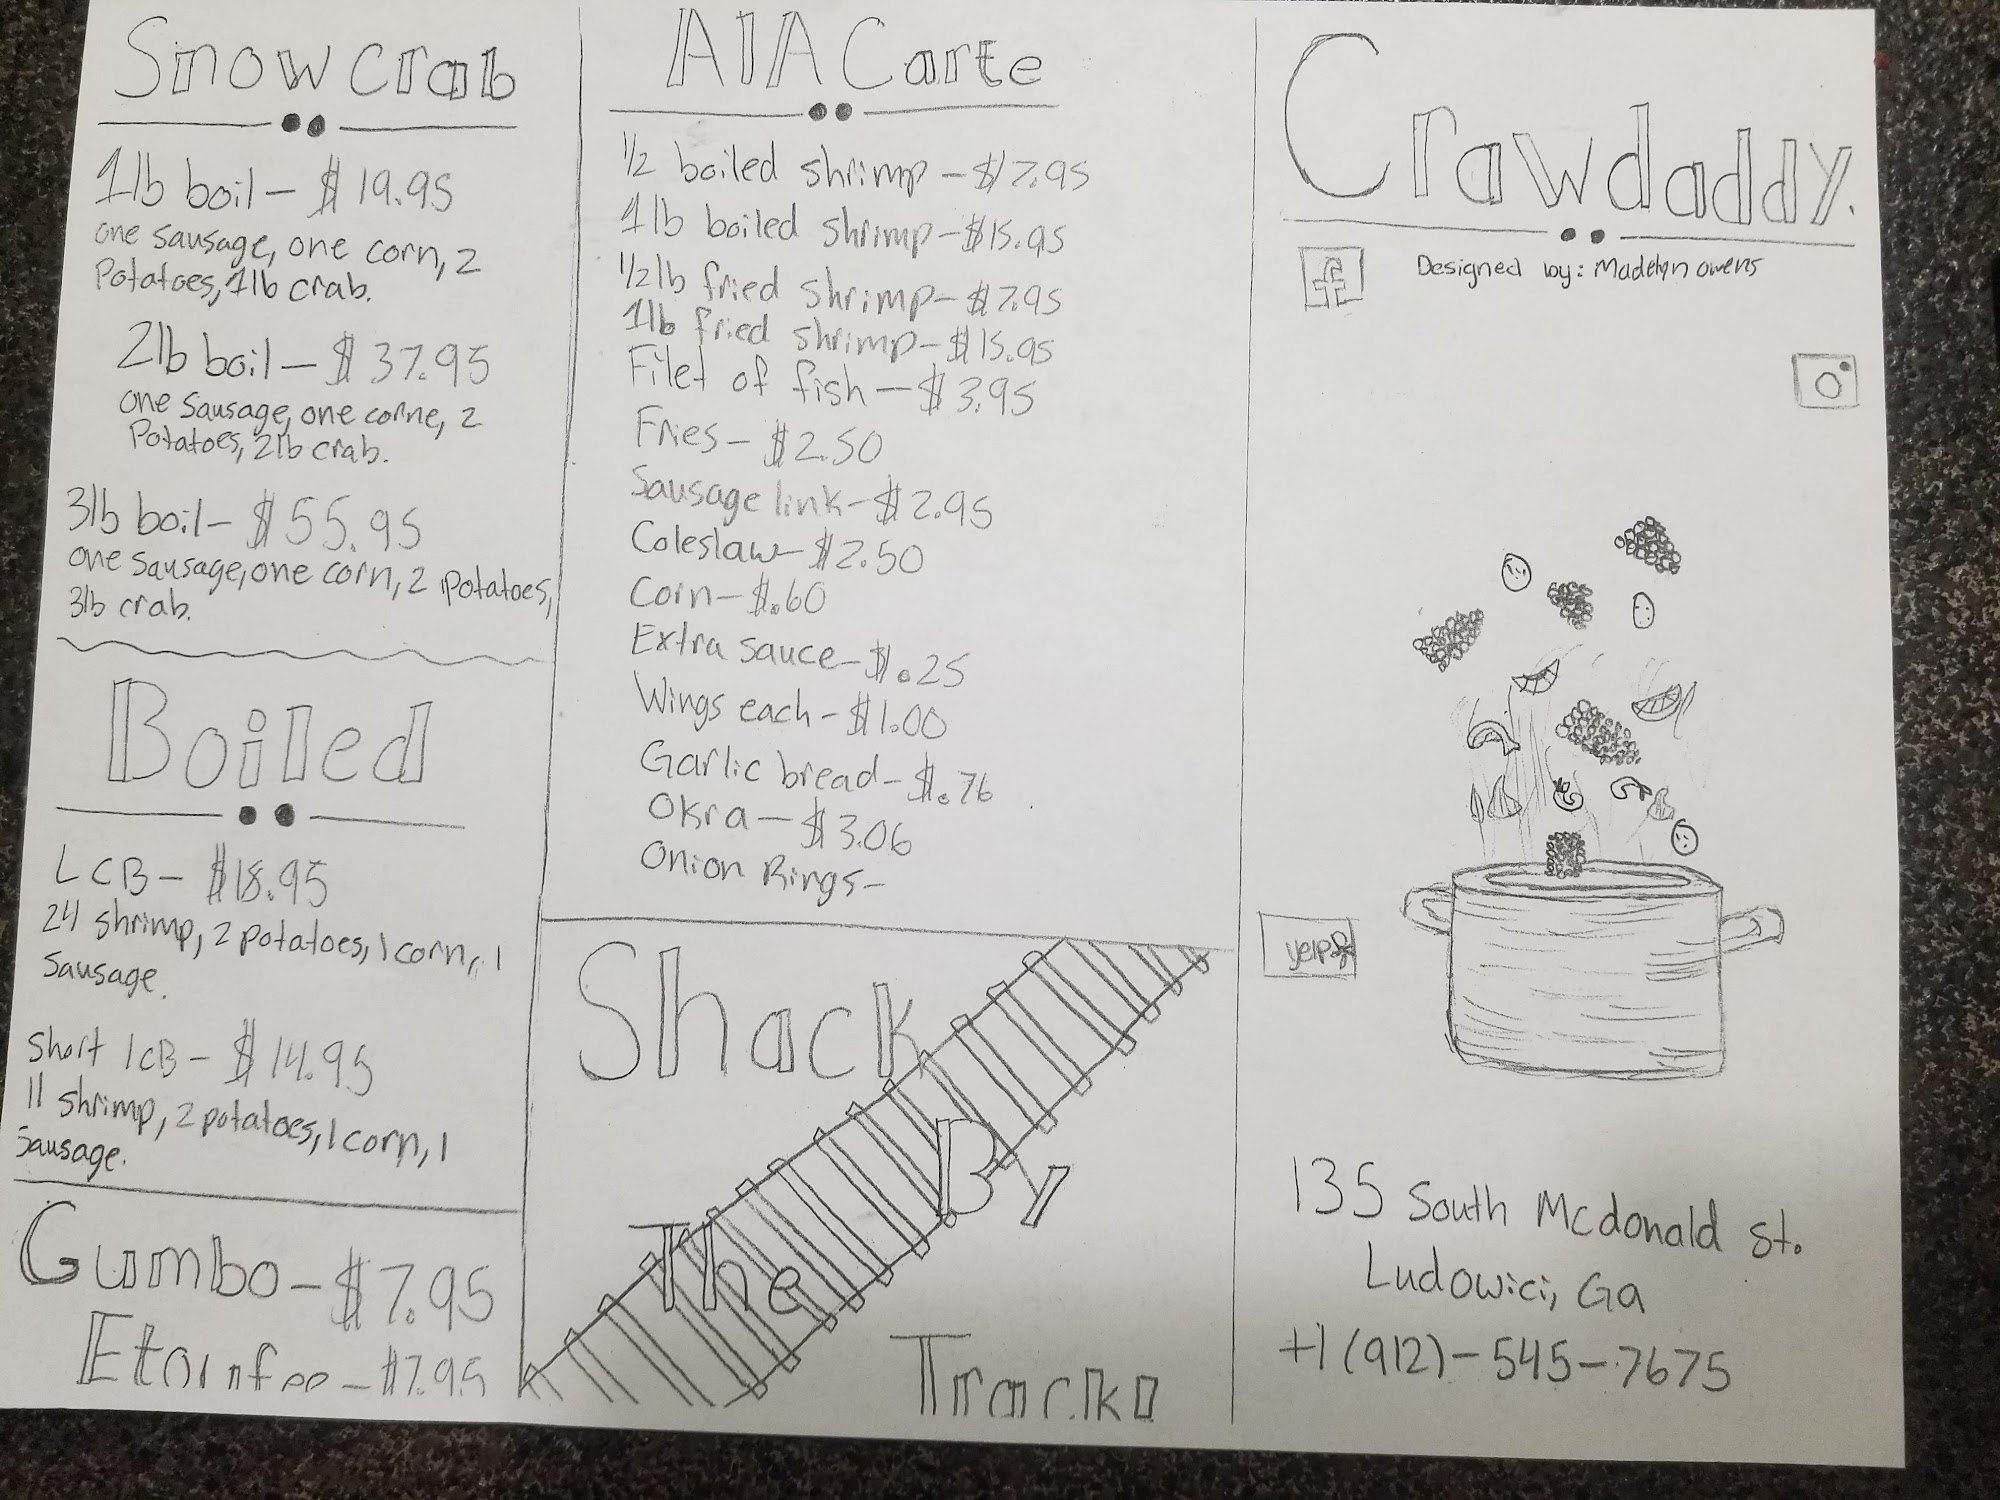 Snow Crab
1lb boil - $19.95
one sausage, one corn, 2
Potatoes, 1lb crab.
2lb boil - $37.95
one sausage, one corne, 2
Potatoes, 2lb crab.
3lb boil - $55.95
one sausage, one corn, 2 potatoes,
3lb crab.
Boiled
LCB - $18.95
24 shrimp, 2 potatoes, 1 corn, 1
Sausage.
Short lCB - $14.95
11 shrimp, 2 potatoes, 1 corn, 1
Sausage.
Gumbo - $7.95
Etoufee - $7.95
AlA Carte
1/2 boiled shrimp - $7.95
1lb boiled shrimp - $15.95
1/2lb fried shrimp - $7.95
1lb fried shrimp - $15.95
Filet of fish - $3.95
Fries - $2.50
Sausage link - $2.95
Coleslaw - $2.50
Corn - $.60
Extra sauce - $.25
Wings each - $1.00
Garlic bread - $.76
Okra - $3.06
Onion Rings -
Shack
By
The
Tracks
Crawdaddy.
f
Designed by: Madelyn owens
yelp
135 South Mcdonald St.
Ludowici, Ga
+1 (912) - 545 - 7675